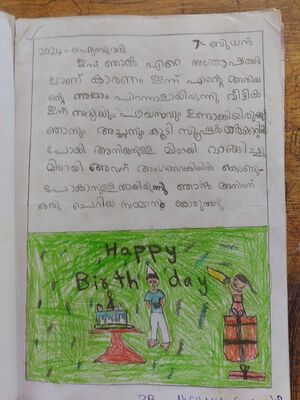 2024 - ഫെബ്രുവരി 7 - ബുധൻ
ഇന്ന് ഞാൻ ഏറെ സന്തോഷത്തി
ലാണ് കാരണം ഇന്ന് എന്റെ അനിയ
ന്റെ നാലാം പിറന്നാളായിരുന്നു വീട്ടിൽ
ഇന്ന് സദ്യയും പായസവും ഉണ്ടാക്കിയിരുന്നു
ഞാനും അച്ഛനും കൂടി സൂപ്പർ മാർക്കറ്റിൽ
പോക്കി അനിയനുള്ള മിഠായി വാങ്ങിച്ചു
മിഠായി അവന് അംഗനവാടിയിൽ കൊണ്ടു-
പോകാനുള്ളതായിരുന്നു ഞാൻ അനിയന്
ഒരു ചെറിയ സമ്മാനം കൊടുത്തു
Happy
Birthday
4